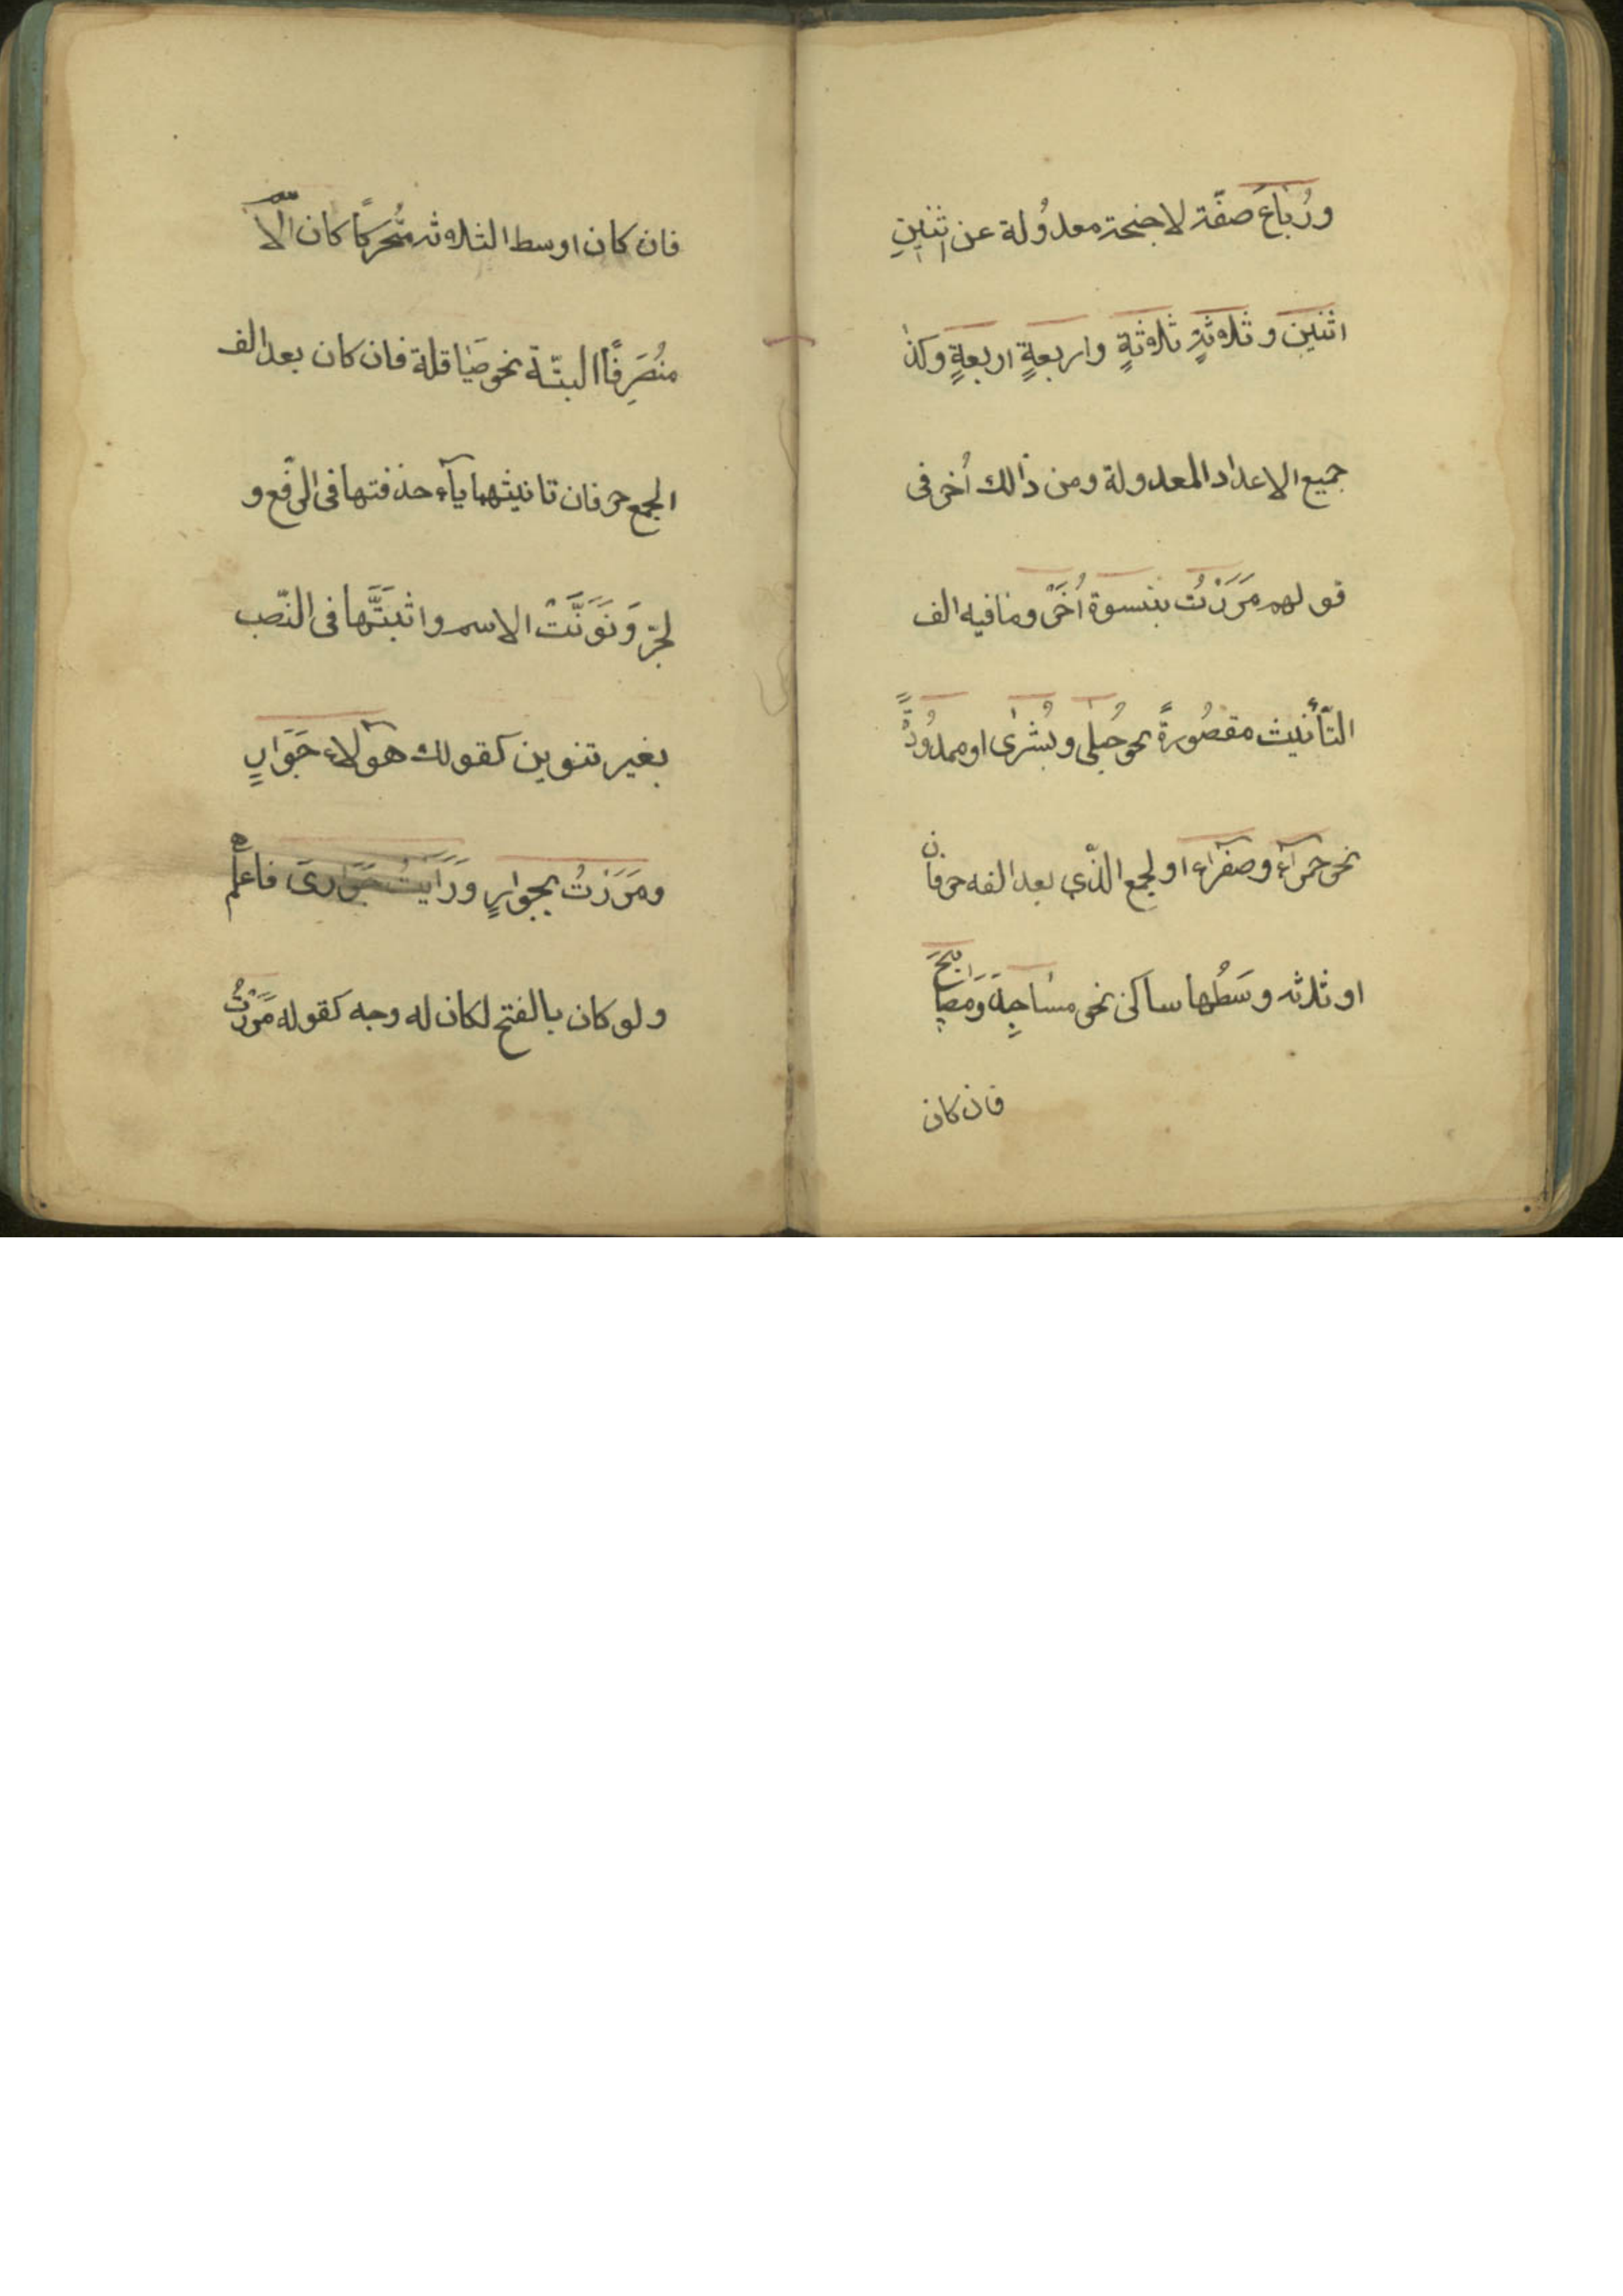 ورُبَاعَ صفَة لاجنحة معدُولة عن اثنينِ
اثنين وثلاثةٍ ثلاثةٍ واربعةٍ اربعةٍ وكذا
جميع الاعداد المعدولة ومن ذالك اُخر فى
قولهم مَرَرْتُ بنسوة اُخَرَ وما فيه الف
التّأنيث مقصُورةً نحو حُبلى وبُشرى او ممدُودَّةً
نحو حمرآء وصفرآء او لجمع الذّي بعد الفه حرفان
او ثلثه وسَطُها ساكن نحو مساجِدَ وَمَصَابيحَ
فان كان
فان كان اوسط الثلاثه مُتُحرّكًا كان الّا
منُصَرِفًا البتّة نحو صَيَاقلة فان كان بعد الف
الجمع حرفان ثانيثهما يآء حذفتها فى الرّفع و
لجرّ وَنَوَنَّتْ الاسم واثبَتَّها فى النّصب
بغير تنوين كقولك هؤلاء جَوَارٍ
ومَرَرْتُ بجوارٍ ورَايَتُ جَوَارىَ فاعلم
ولو كان بالفتح لكان له وجه كقوله مَرَرْتُ